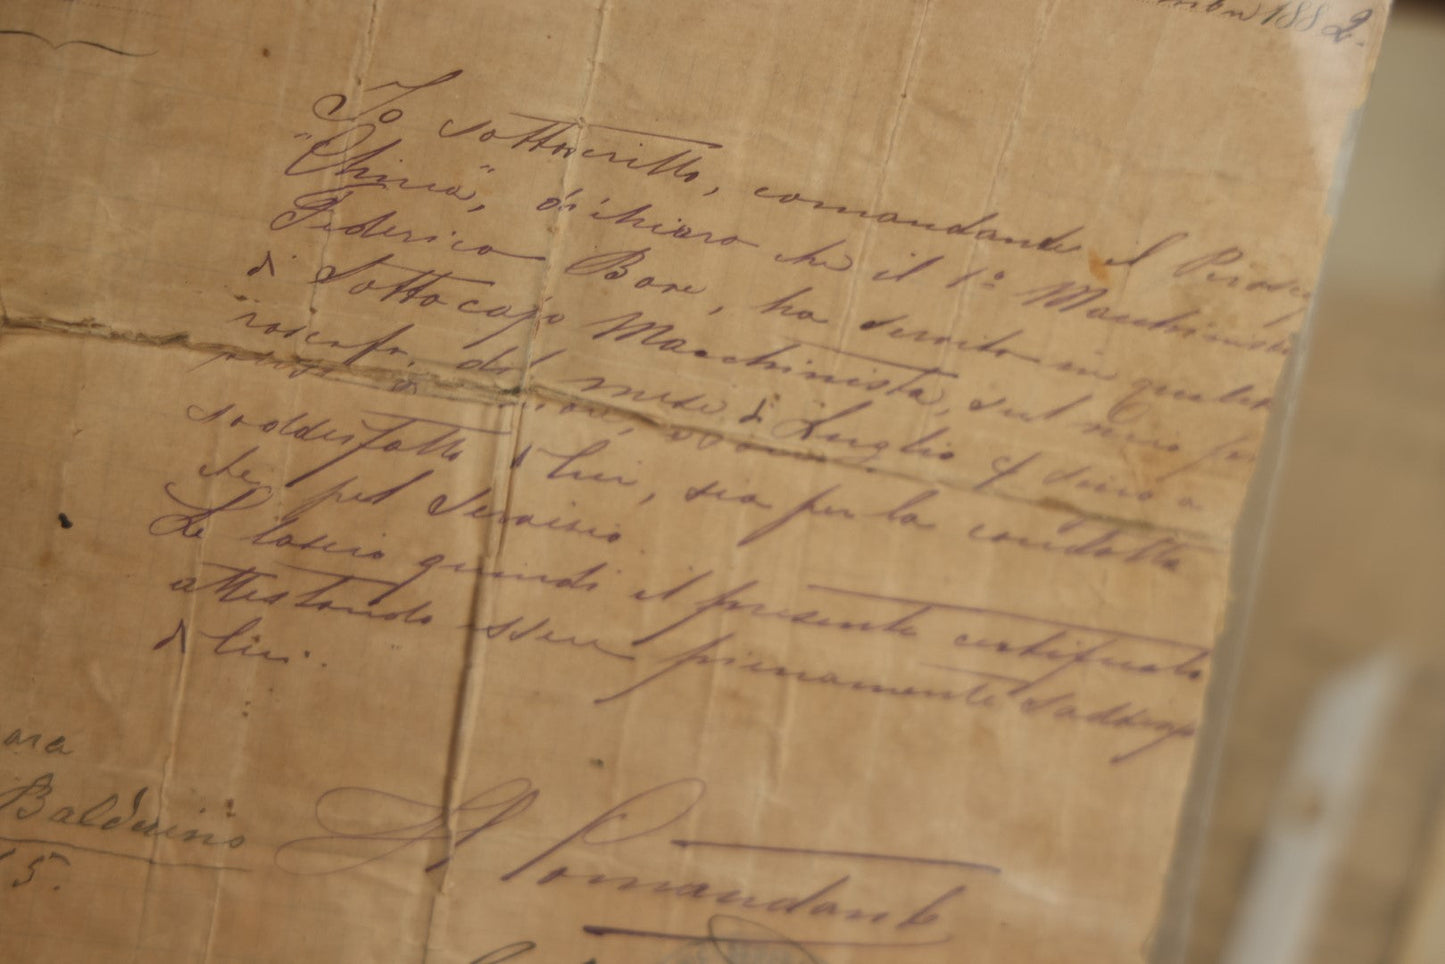 1882.
Io sottoscritto, comandante il
"China", dichiaro che il 1º Macchinista
Federico Bore, ha servito in
di Sottocapo Macchinista, sul mio
del mese di Luglio
soddisfatto di lui, sia per la condotta
che pel servizio.
Le lascio quindi il presente certificato
attestando essere pienamente
di lui.
Balduino
15.
Il Comandante